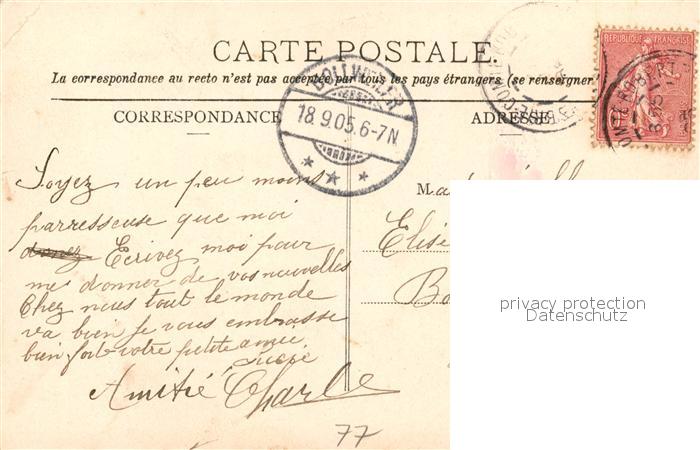 CARTE POSTALE.
La correspondance au recto n'est pas acceptée par tous les pays étrangers (se renseigner
CORRESPONDANCE
ADRESSE
RÉPUBLIQUE FRANÇAISE
18.9.05.6-7N
Soyez un peu moins
parresseuse que moi
donez Ecrivez moi pour
me donner de vos nouvelles
Chez nous tout le monde
va bien je vous embrasse
bien fort votre petite amie
Amitié Charle
M
Elise
privacy protection
Datenschutz
77